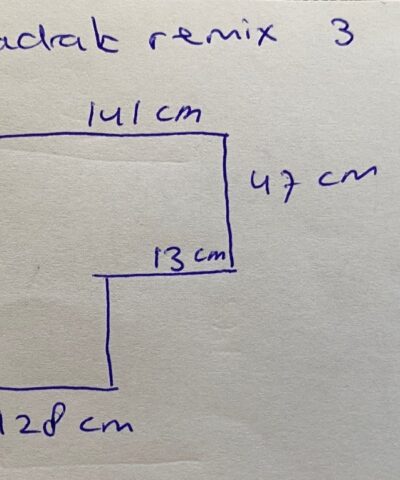 adrat remix 3
141 cm
47 cm
13 cm
128 cm